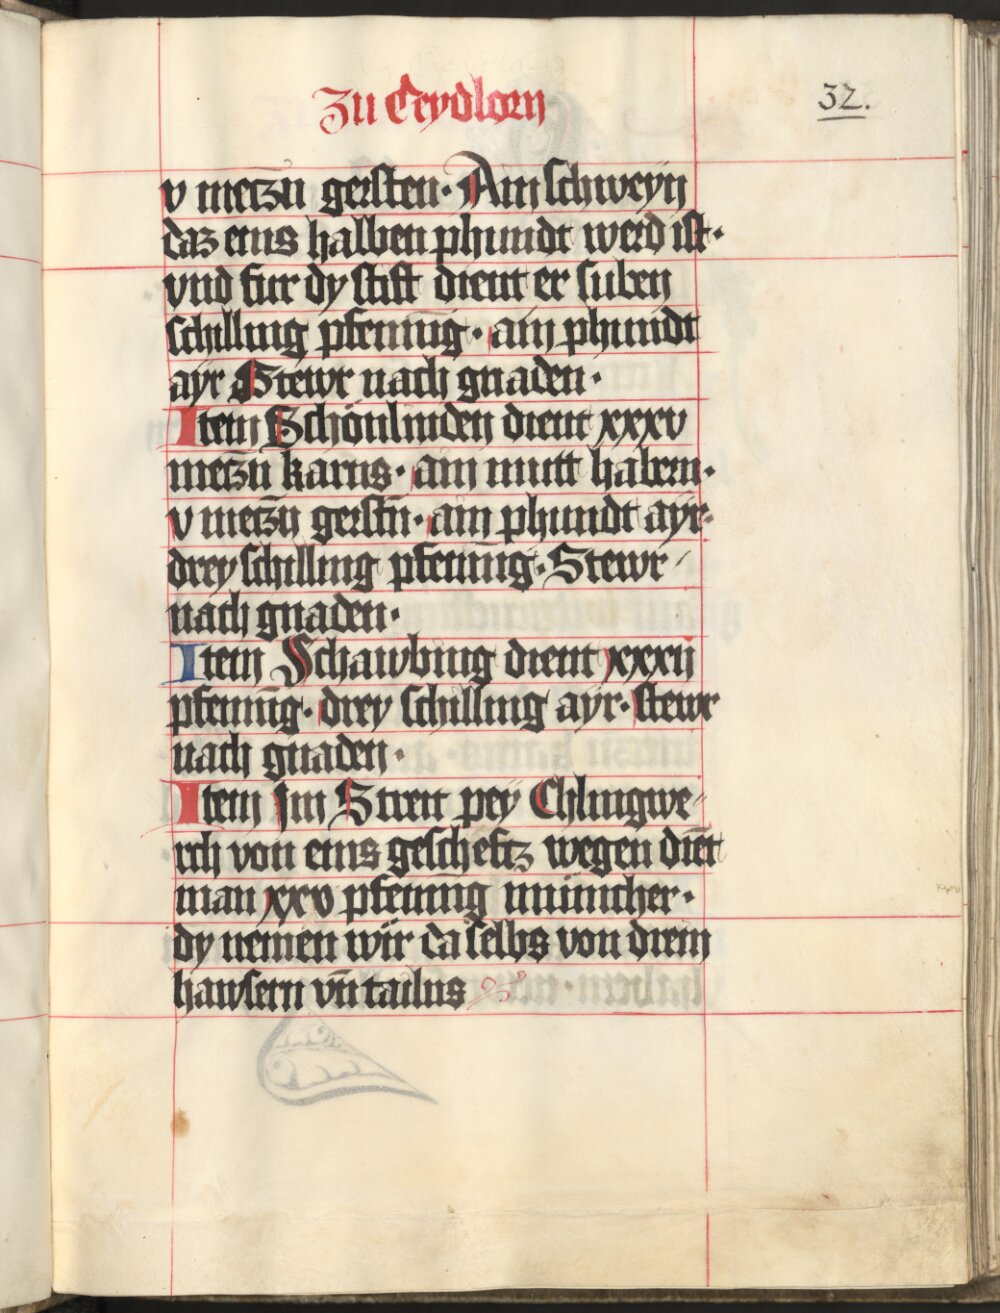 Zu Teydlorn
32.
v metzn̄ gersten · Ain schweyn
daz eins halben phundt werd ist ·
vnd fur dy stift dient er suben
schilling pfenni̅g · ain phundt
ayr Stewr nach gnaden ·
Item Schönlinden dient xxxv
metzn̄ karns · ain mutt habern ·
v metzn̄ gerstn̄ · ain phundt aÿr ·
drey schilling pfenni̅g · Stewr
nach gnaden ·
Item Schawbing dient xxxii
pfenni̅g · drey schilling aÿr · stewr
nach gnaden ·
Item Im Streit peÿ Chlingwe
rch von eins gescheftz wegen die̅t
man xxv pfenni̅g münicher ·
dy nemen wir da selbs von drein
hawsern vn̄ tailns